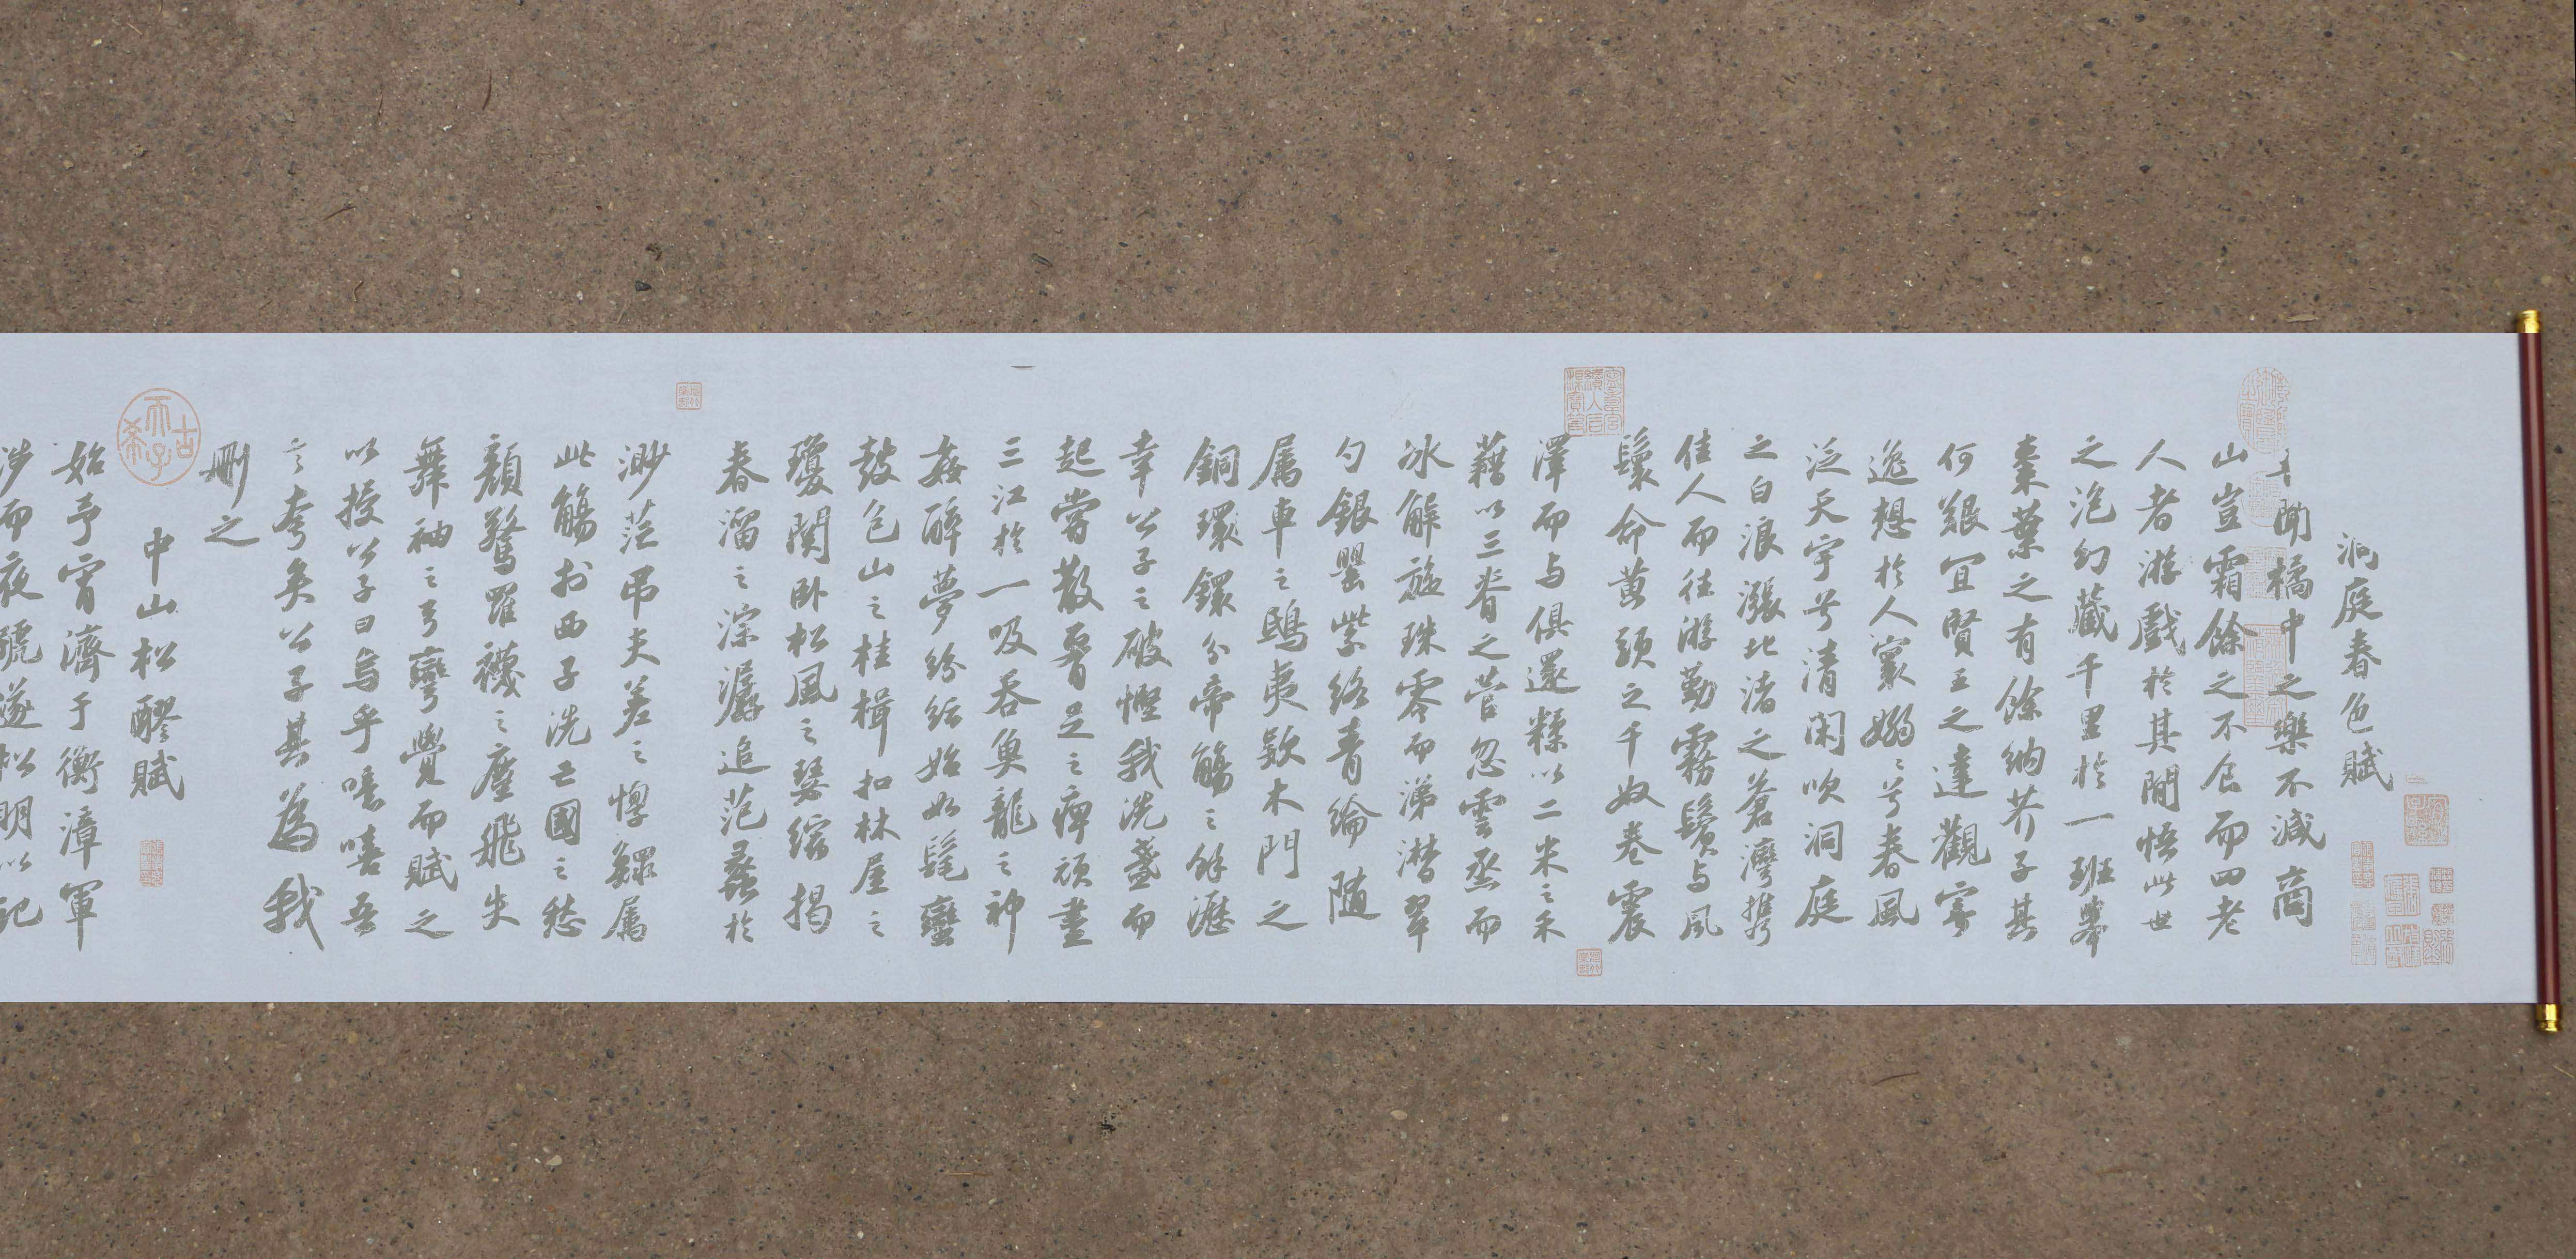 洞庭春色賦
聞橘中之樂不減商
山豈霜餘之不食而四老
人者游戲於其間悟此世
之泡幻藏千里於一班舉
棗葉之有餘納芥子其
何艱宜賢王之達觀寄
逸想於人寰嫋〻兮春風
泛天宇兮清閑吹洞庭
之白浪漲北渚之蒼灣携
佳人而往游勤霧鬢与風
鬟命黃頭之千奴卷震
澤而与俱還糅以二米之禾
藉以三脊之菅忽雲烝而
冰解旋珠零而涕潸翠
勺銀罌紫絡青綸隨
屬車之鴟夷款木門之
銅環鐶分帝觴之餘瀝
幸公子之破慳我洗盞而
起嘗散腰足之痹頑盡
三江於一吸吞魚龍之神
姦醉夢紛紜始如髦蠻
鼓包山之桂楫扣林屋之
瓊関卧松風之瑟縮揭
春溜之淙潺追范蠡於
渺茫弔夫差之惸鰥屬
此觴於西子洗亡國之愁
顏驚羅襪之塵飛失
舞袖之弓彎覺而賦之
以授公子曰烏乎噫嘻吾
言夸矣公子其為我
刪之
中山松醪賦
始予宵濟于衡漳軍
涉而夜號遂松明以記
古希天子